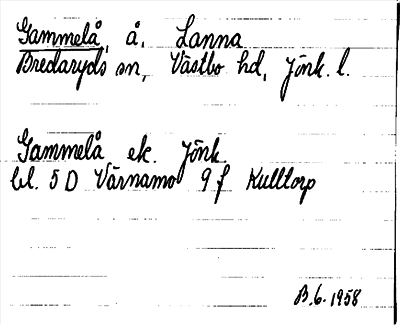 Gammelå, å, Lanna
Bredaryds sn, Västbo hd, Jönk. l.
Gammelå ek. Jönk
bl. 5 D Värnamo 9 f Kulltorp
B. 6. 1958